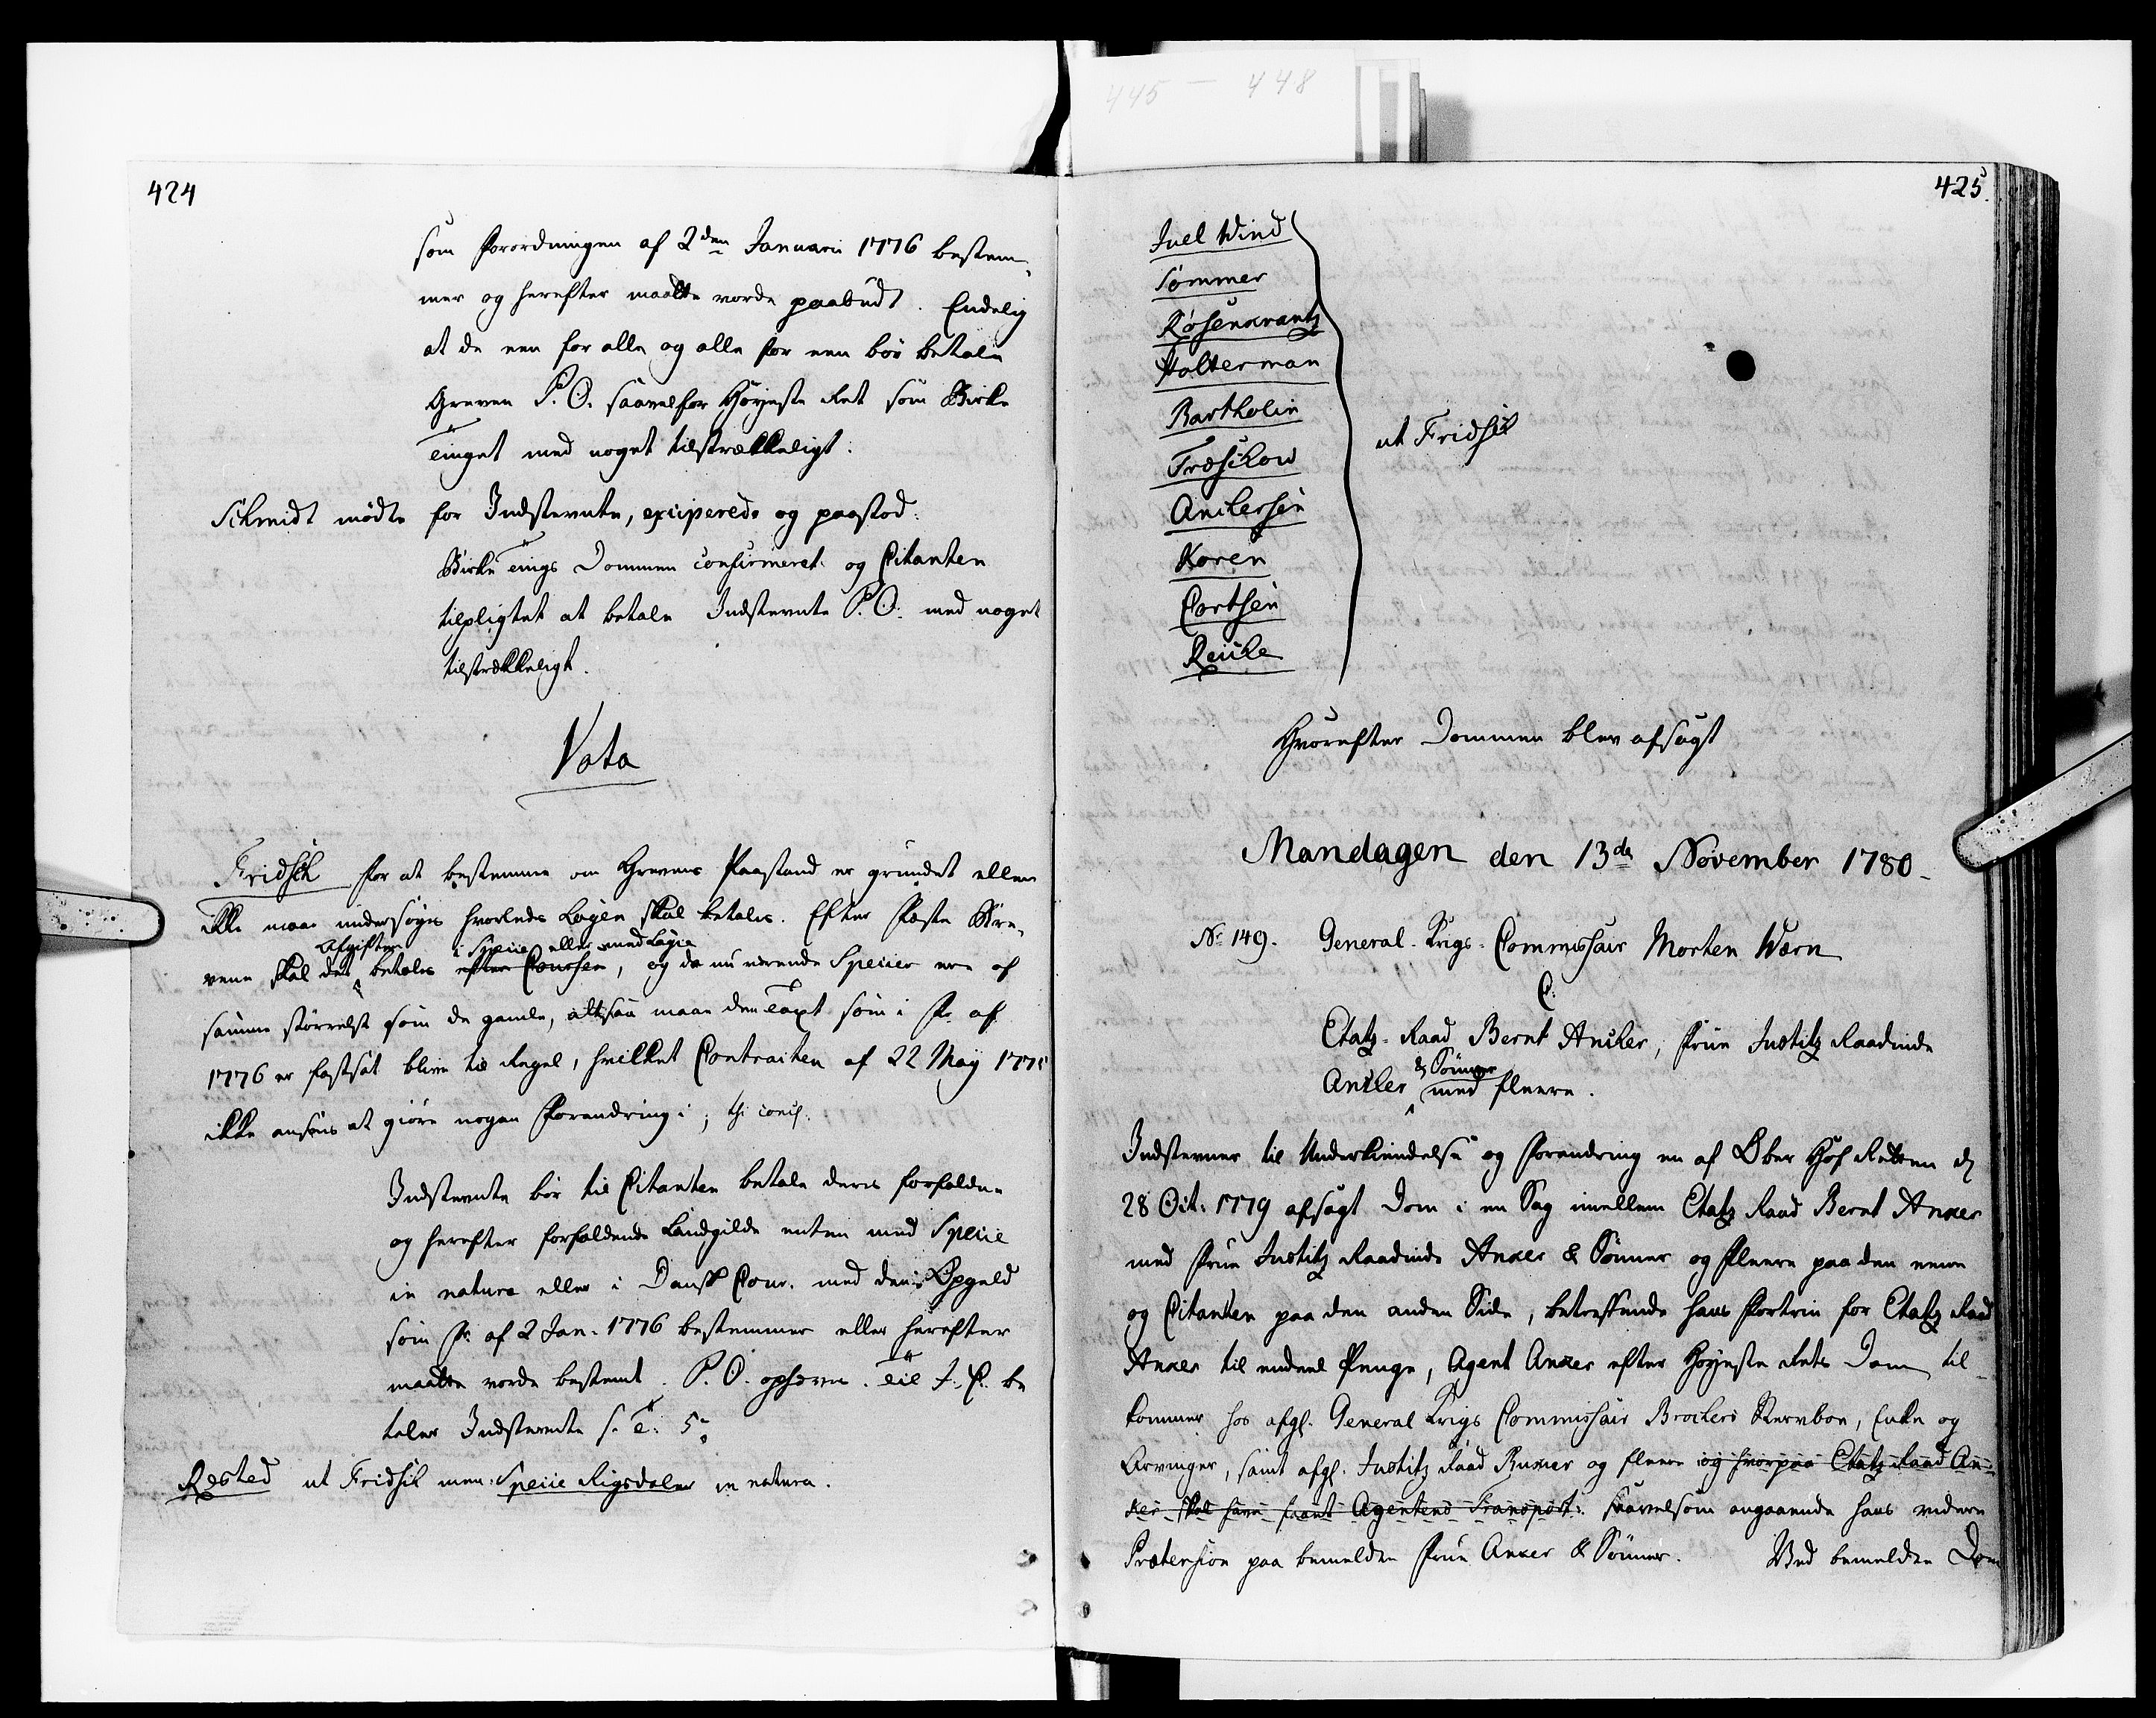 445 - 448
424
som Forordningen af 2den Januarii 1776 bestem-
mer og herefter maatte vorde paabudt. Endelig
at de een for alle og alle for een bör betale
Greven P. O. saavel for Höyeste Ret som Birke
Tinget med noget tilstrækkeligt.
Schmidt mødte for Indstevnte, exciperede og paastod:
Birke Tings Dommen confirmeret og Citanten
tilpligtet at betale Indstevnte P. O. med noget
tilstrækkeligt.
Vota
Fridsch for at bestemme om Grevens Paastand er grundet eller
ikke maae undersöges hvorledes skal betales. Efter Fæste Bre-
Afgiften i Specie eller med Lagie
vene skal det betales efter Coursen, og da nu værende Specier ere af
samme störrelse som de gamle, altsaa maae den Taxt som i Fr. af
1776 er fastsat blive til Regel, hvilket Contracten af 22 May 1775
ikke ansees at giöre nogen Forandring i; thi concl.
Indstevnte bör til Citanten betale deres forfaldne
og herefter forfaldende Landgilde enten med Specie
in natura eller i Dansk Cour. med den Opgeld
som Fr. af 2 Jan. 1776 bestemmer eller herefter
maatte vorde bestemt. P. O. ophæves. Til J. C. be
taler Indstevnte 5
Rested ut Fridsch men: Specie Rigsdaler in natura.
425
Juel Wind
Sommer
Rosenkrantz
Holterman
Bartholin
Træschow
Anchersen
Koren
Cortsen
Reiche
ut Fridsch
Hvorefter Dommen blev afsagt
Mandagen den 13de November 1780
No 149. General-Krigs-Commissair Morten Wærn
C:
Etatz-Raad Bernt Ancher, Frue Justitz Raadinde
& Sönner
Ancher med fleere.
Indstevner til Underkiendelse og Forandring en af Ober Hof Retten d.
28 Oct: 1779 afsagt Dom i en Sag imellem Etatz Raad Bernt Anker
med Frue Justitz Raadinde Anker & Sönner og Fleere paa den eene
og Citanten paa den anden Side, betreffende hans Fortrin for Etatz Raad
Anker til endeel Penge, Agent Anker efter Höyeste Rets Dom til-
kommer hos afgl. General Krigs Commissair Brochers Sterboe, Enke og
Arvinger, samt afgl. Justitz Raad og fleere og hvorpaa Etatz Raad An-
ker skal have faaet Agentens Transport: saavelsom angaaende hans videre
Prætension paa bemeldte Frue Anker & Sönner. Ved bemeldte Dom